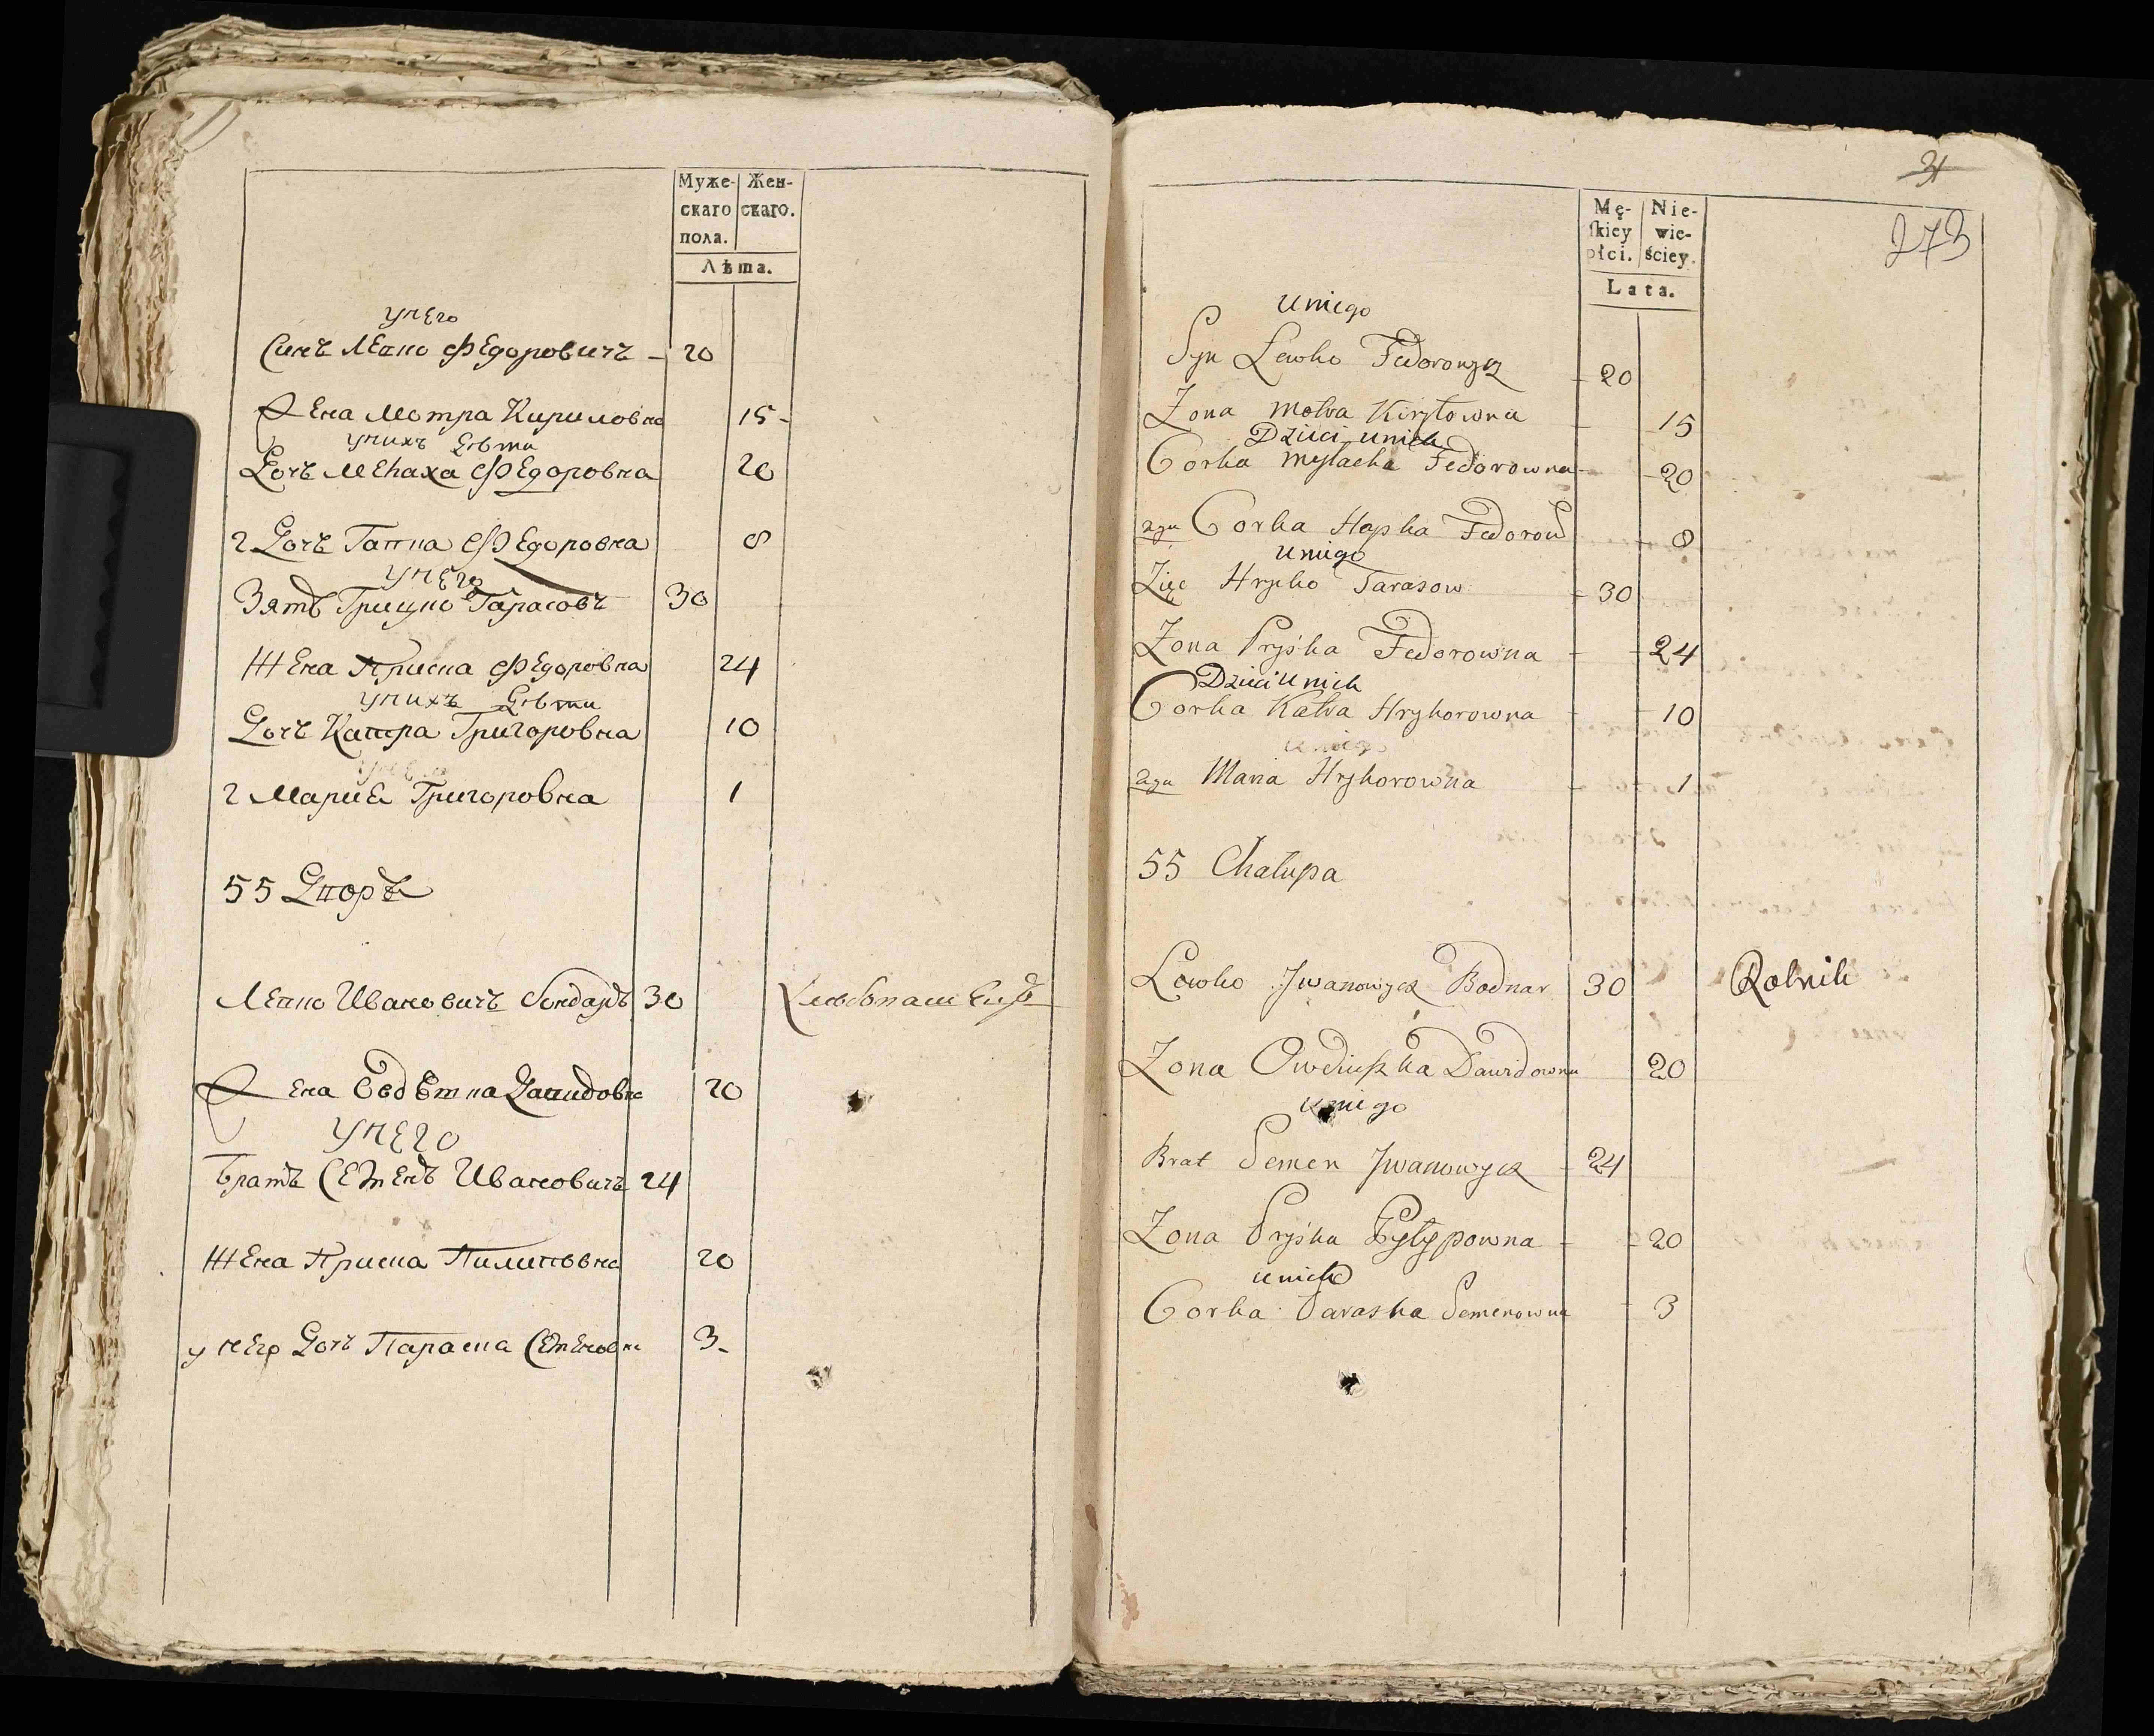 Муже- Жен-
скаго скаго.
пола.
Лѣта.
унего
Синъ Левко Федоровичъ - 20
Жена Мотра Кириловна 15-
унихъ дѣти
Дочъ Федоровка 20
2 Дочъ Гапка Федоровка 8
унего
Зять Грицко Тарасовъ 30
Жена Приска Федоровка 24
унихъ дѣти
Дочъ Катра Григоровка 10
2 Мария Григоровка 1
55 Дворъ
Левко Ивановичъ 30 Хлебопашецъ
Жена Давидовна 20
унего
Братъ Семенъ Ивановичъ 24
Жена Приска Пилиповна 20
у него Дочъ Параска Семеновна 3-
21
273
Mę- Nie-
skiey wie-
płci. ściey.
Lata.
uniego
Syn Lewko Fedorowycz - 20
Zona Motra Kiryłowna - 15
Dzieci unich
Corka Mylacha Fedorowna - 20
2ga Corka Hapka Fedorow - 8
uniego
Zięc Hrycko Tarasow - 30
Zona Pryśka Fedorowna - 24
Dzieci unich
Corka Katra Hryhorowna - 10
uniego
2ga Maria Hryhorowna - 1
55 Chałupa
Lewko Jwanowycz Bodnar 30 Rolnik
Zona Owdiuszka Dawidowna 20
uniego
Brat Semen Jwanowycz - 24
Zona Pryśka Pyłypowna - 20
unich
Corka Paraska Semenowna - 3